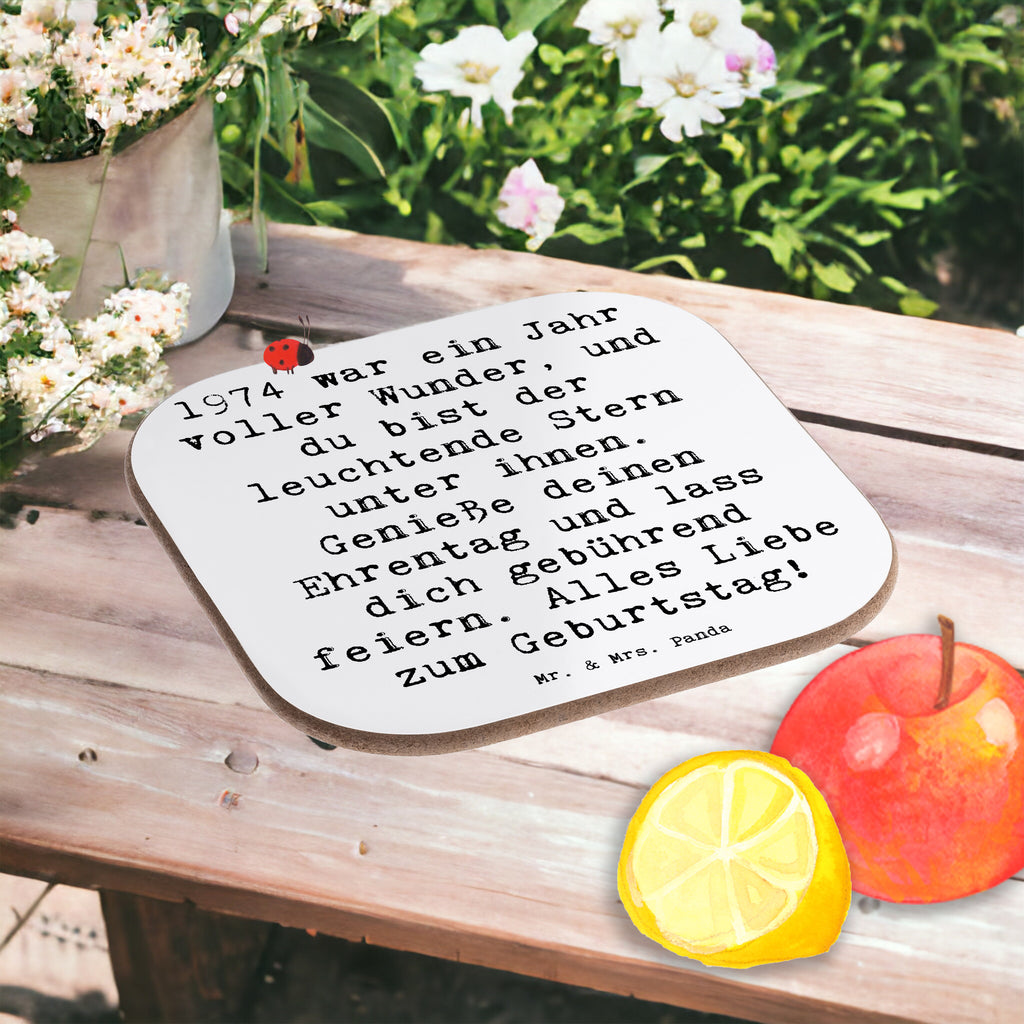 1974 war ein Jahr
voller Wunder, und
du bist der
leuchtende Stern
unter ihnen.
Genieße deinen
Ehrentag und lass
dich gebührend
feiern. Alles Liebe
zum Geburtstag!
Mr. & Mrs. Panda